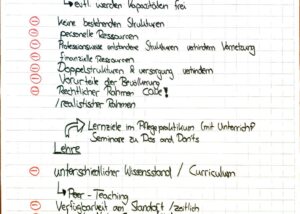 ↳ evtl. werden Kapazitäten frei
⊖ keine bestehenden Strukturen
⊖ personelle Ressourcen
⊖ Professionsweise entstandene Strukturen verhindern Vernetzung
⊖ finanzielle Ressourcen
⊖ Doppelstrukturen & versorgung verhindern
⊖ Vorurteile der Bevölkerung
⊖ Rechtlicher Rahmen CAVE!
/realistischer Rahmen
Lernziele im Pflegepraktikum (mit Unterricht?
Seminare zu Dos and Don'ts
Lehre
⊖ unterschiedlicher Wissensstand / Curriculum
↳ Peer - Teaching
⊖ Verfügbarkeit am Standort / zeitlich